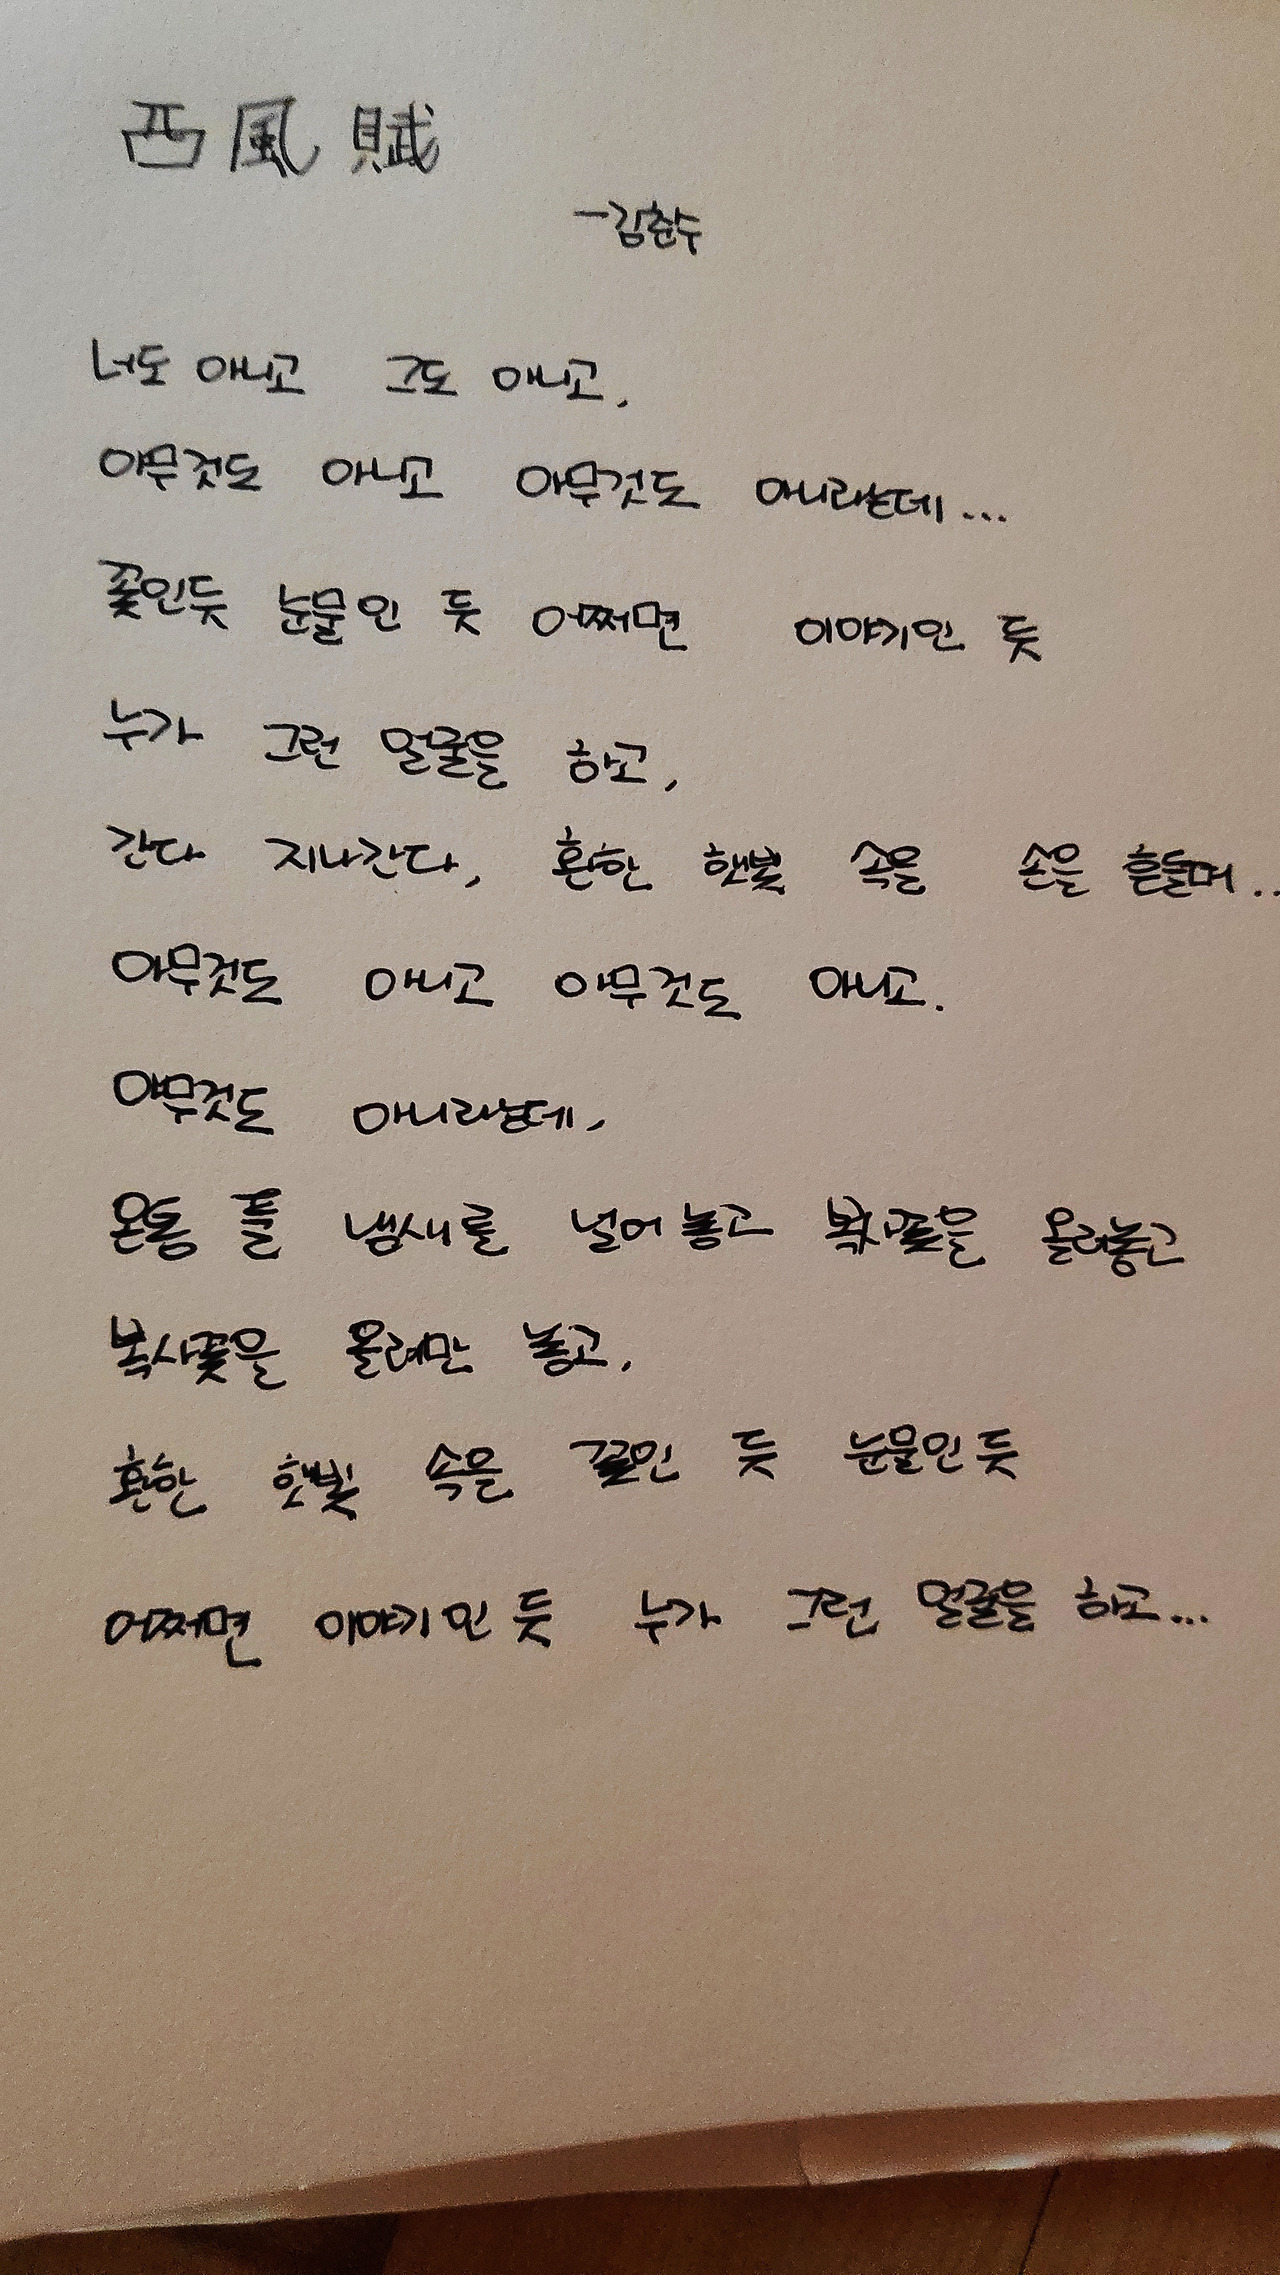 西風賦
-김춘수
너도 아니고 그도 아니고,
아무것도 아니고 아무것도 아니라는데...
꽃인듯 눈물인 듯 어쩌면 이야기인 듯
누가 그런 얼굴을 하고,
간다 지나간다, 환한 햇빛 속을 손을 흔들며..
아무것도 아니고 아무것도 아니고.
아무것도 아니라는데,
온통 풀 냄새를 널어놓고 복사꽃을 올려놓고
복사꽃을 올려만 놓고,
환한 햇빛 속을 꽃인 듯 눈물인 듯
어쩌면 이야기인 듯 누가 그런 얼굴을 하고...